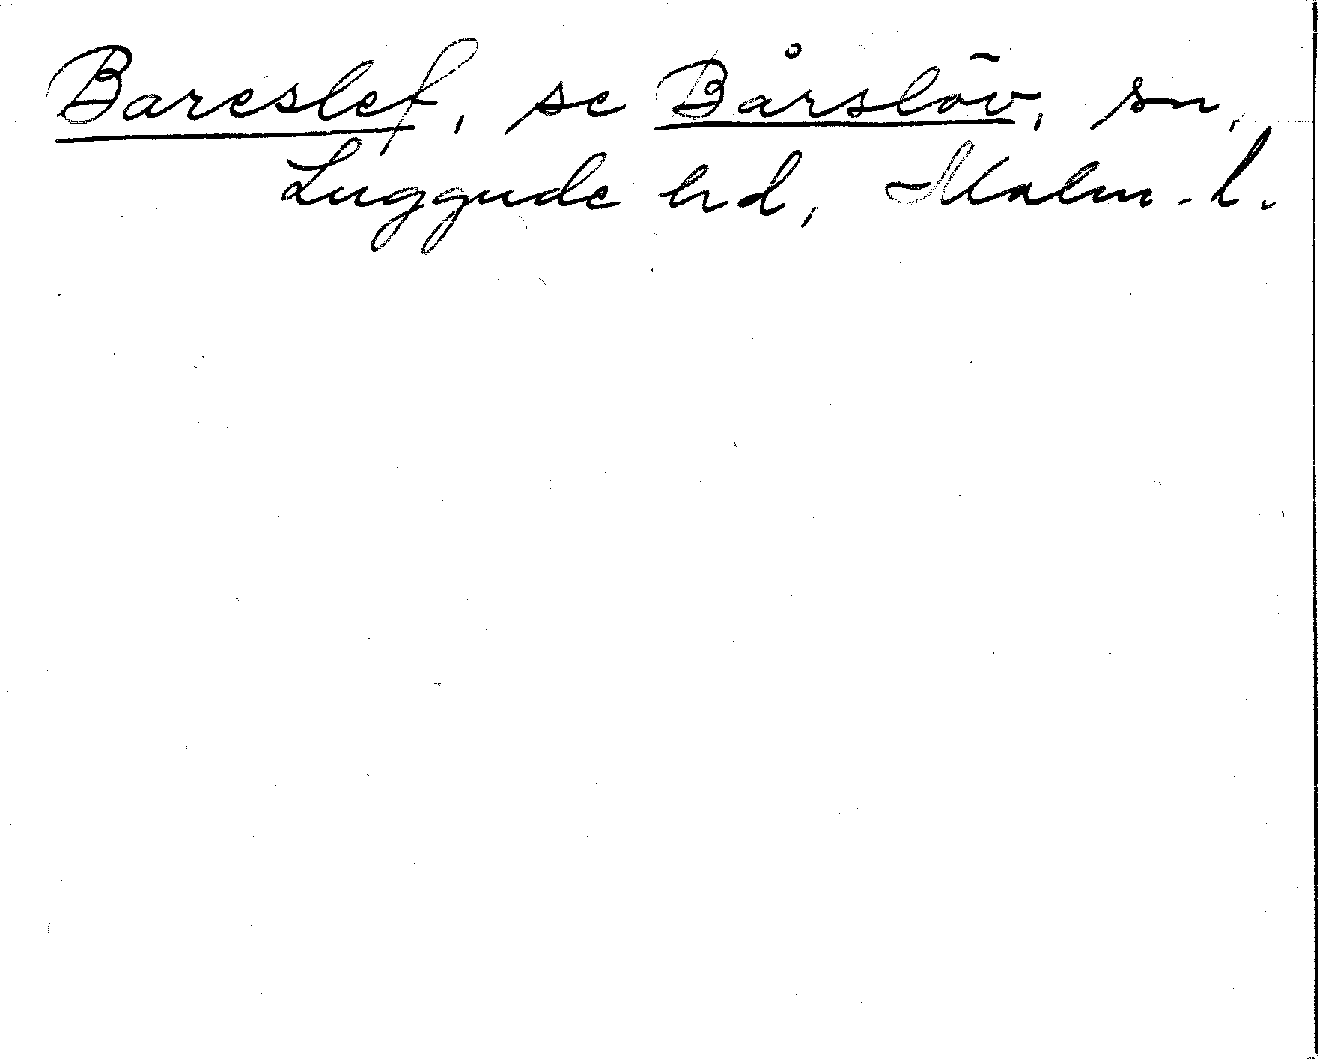 Bareslef, se Bårslöv, sn,
Luggude hd, Malm. l.